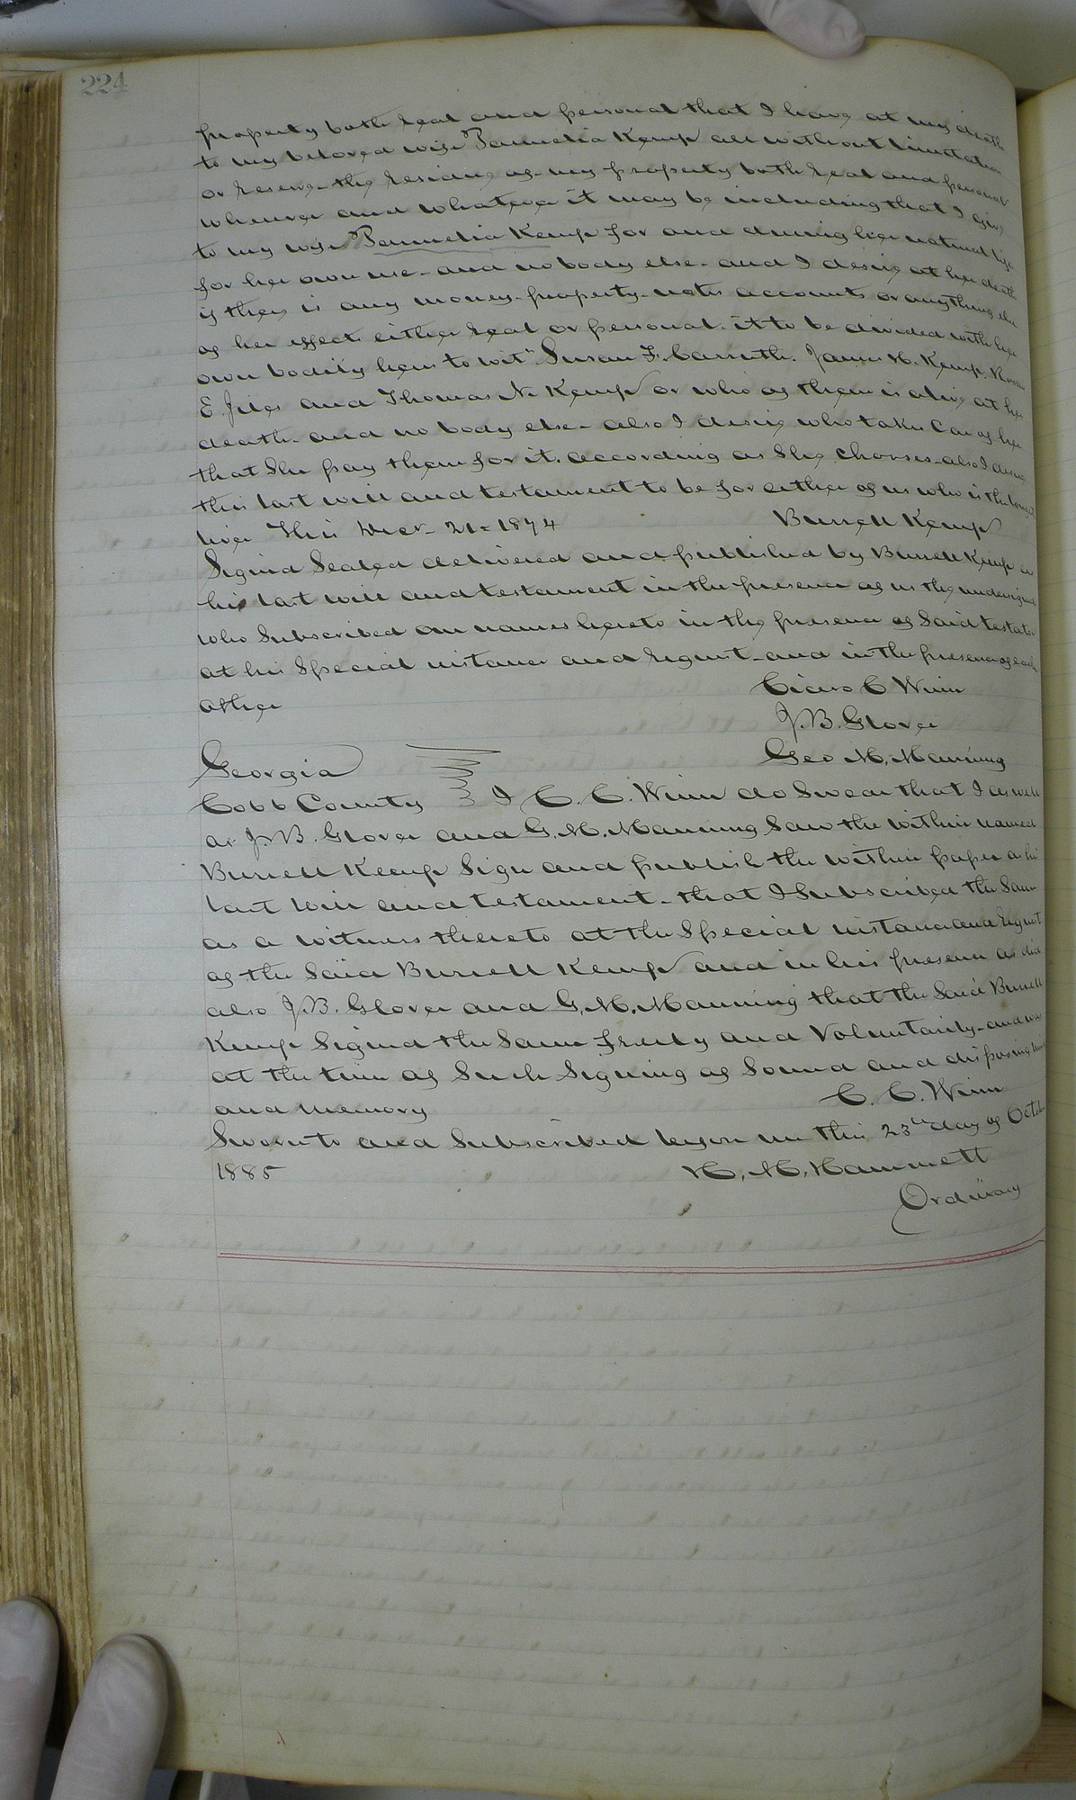 224
property both real and personal that I have at my death
to my beloved wife Pamelia Kemp all without limitation
or reserve - the residue of my property both real and personal
wherever and whatever it may be including that I give
to my wife Pamelia Kemp for and during her natural life
for her own use - and nobody else - and I desire at her death
if there is any money - property - notes accounts or anything else
of her effects either real or personal. it to be divided with her
own bodily heirs to wit" Susan F. Carruth. James H. Kemp.
E. Jiles and Thomas N. Kemp or who of them is alive at her
death - and no body else - also I desire who takes Care of her
that She pay them for it. according as She chooses - also I desire
this last will and testament to be for either of us who is the longest
liver This Decr - 21 - 1874 Burrell Kemp
Signed Sealed delivered and published by Burrell Kemp as
his last will and testament in the presence of us the undersigned
who Subscribed our names hereto in the presence of Said testator
at his Special instance and request - and in the presence of each
other Cicero C Winn
J. B. Glover
Geo M. Manning
Georgia
Cobb County I C. C. Winn do Swear that I as well
as J. B. Glover and G. M. Manning Saw the within named
Burrell Kemp Sign and publish the within paper as his
last will and testament - that I Subscribed the Same
as a witness thereto at the Special instance and request
of the Said Burrell Kemp and in his presence as did
also J. B. Glover and G. M. Manning that the Said Burrell
Kemp Signed the Same freely and Voluntarily - and was
at the time of Such Signing of Sound and disposing mind
and memory C. C. Winn
Sworn to and Subscribed before me this 23rd day of Octob
1885 H. M. Hammett
Ordinary